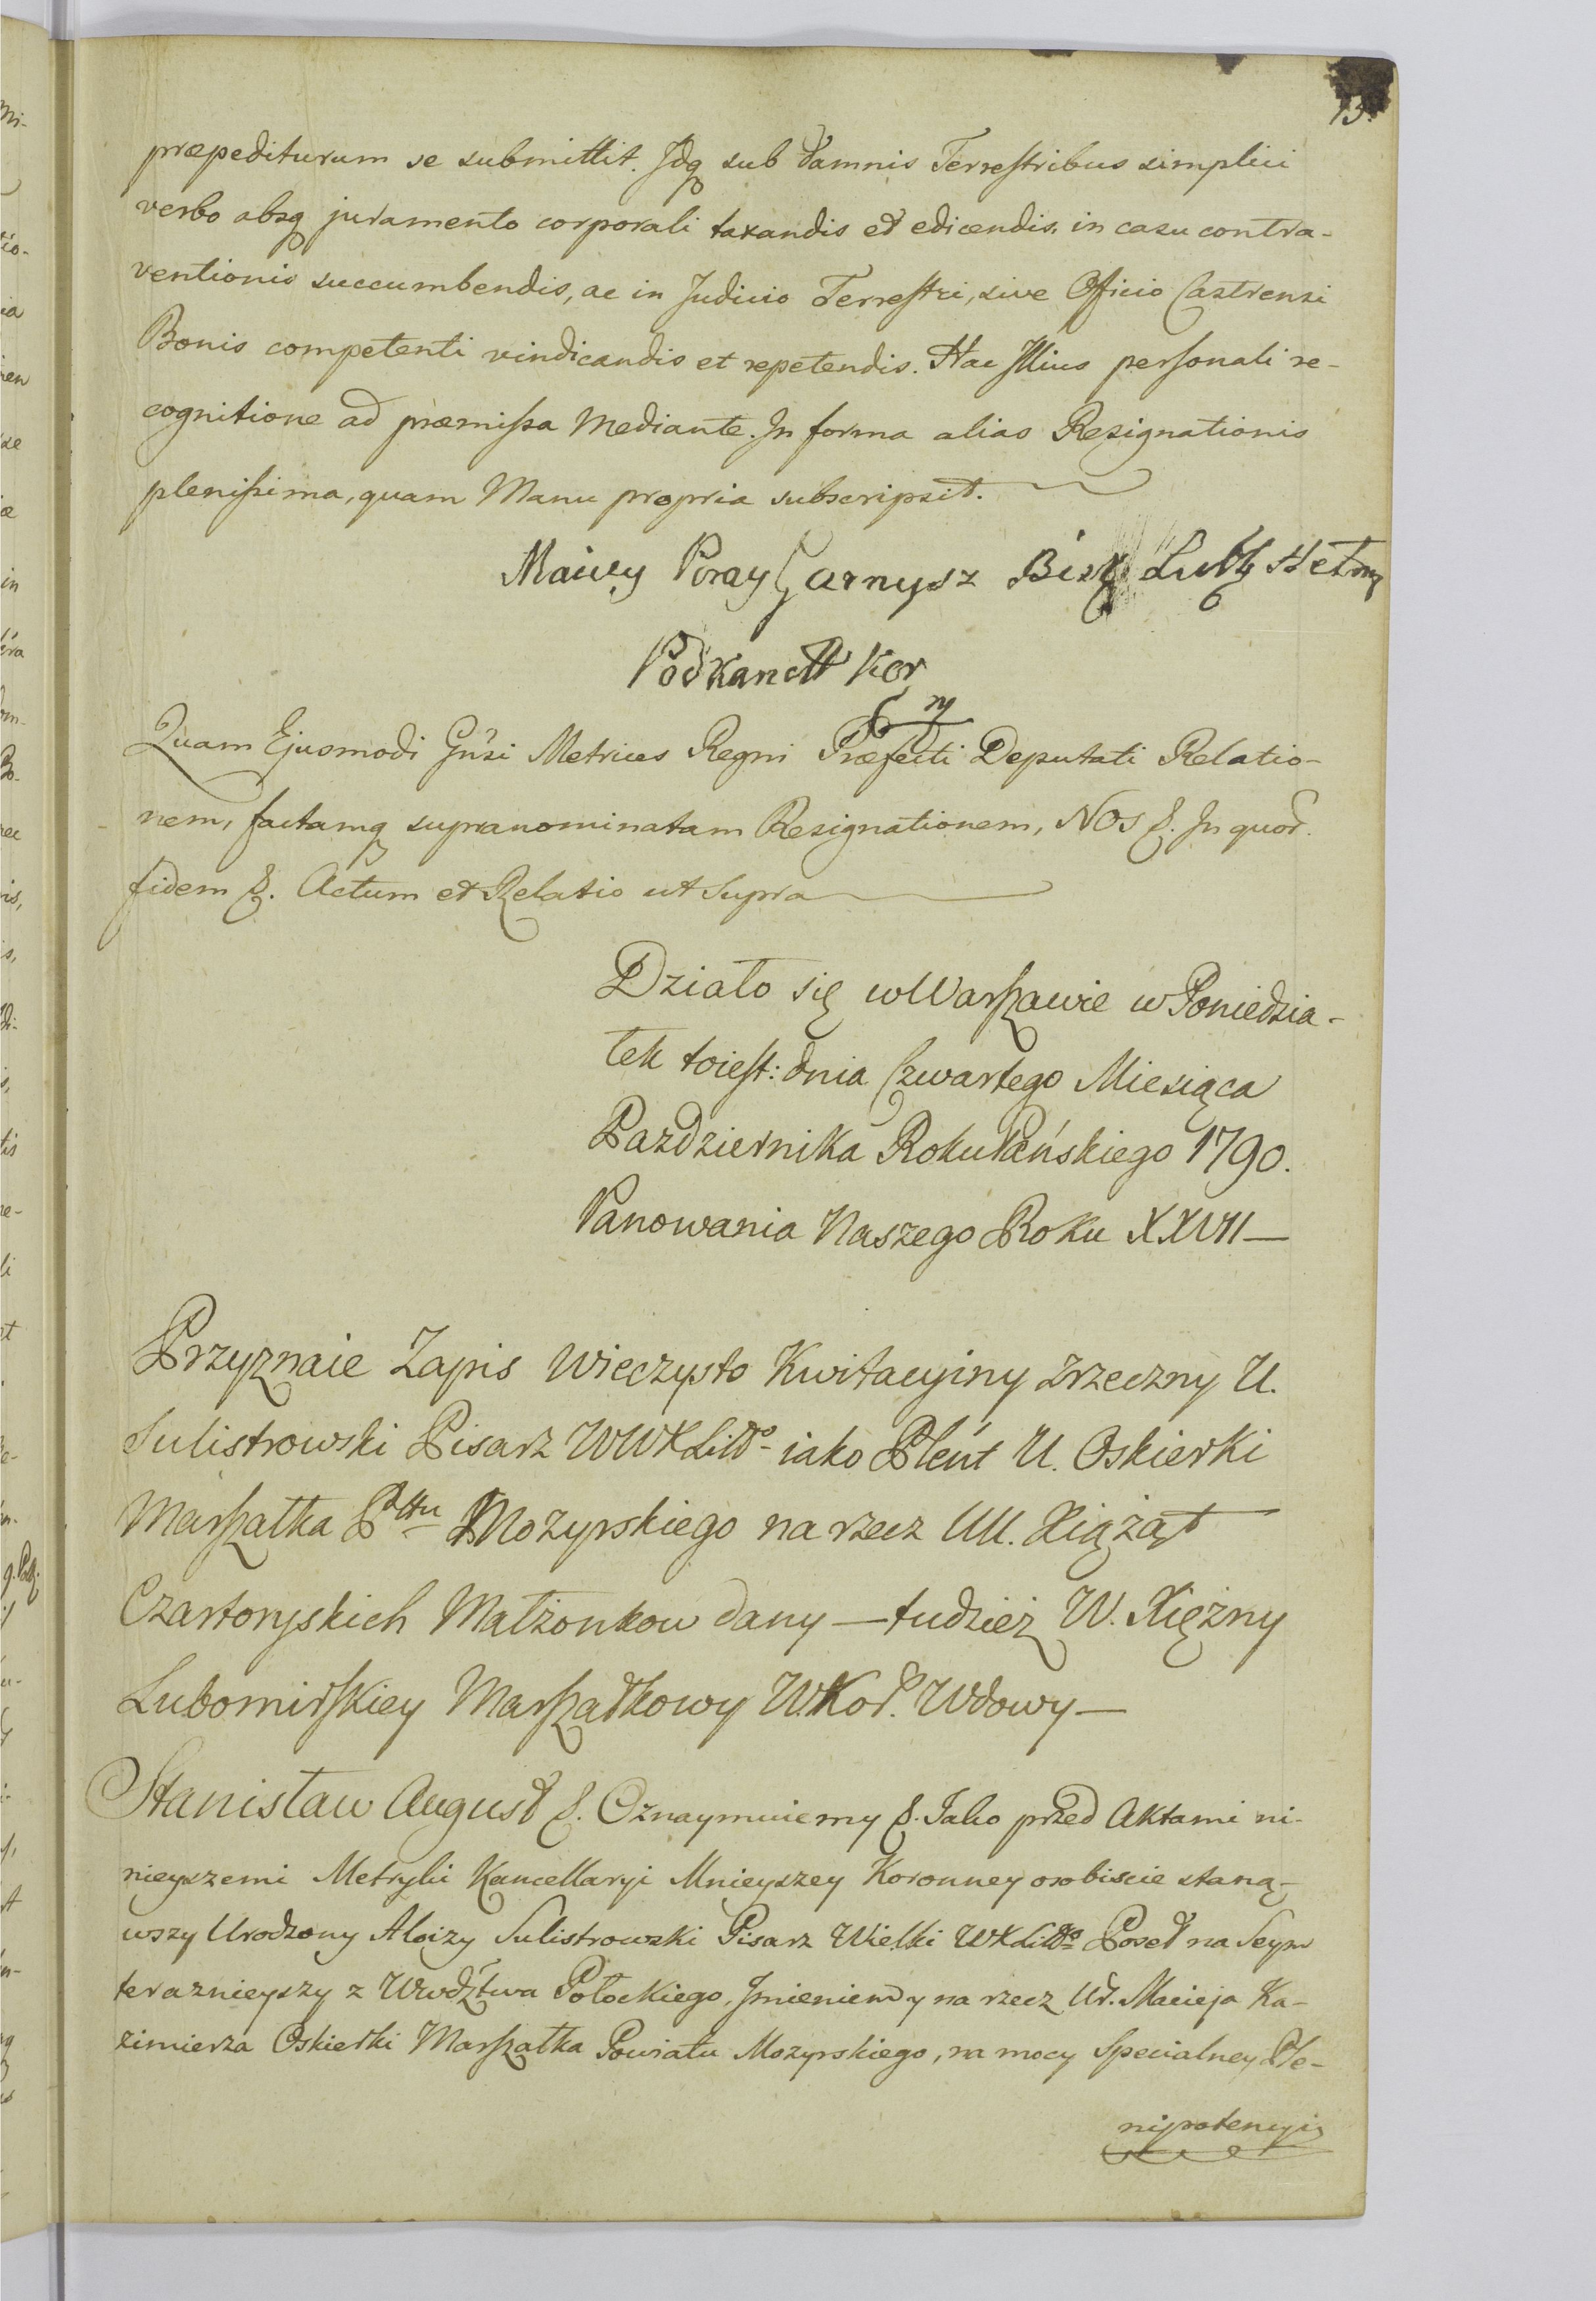 13.
præpediturum se submittit. Idq sub damnis Terrestribus simplici
verbo absq juramento corporali taxandis et edicendis, in casu contra-
ventionis succumbendis, ac in Judicio Terrestri, sive Officio Castrensi
Bonis competenti vindicandis et repetendis. Hac Illius personali re-
cognitione ad præmissa Mediante. In forma alias Resignationis
plenissima, quam Manu propria subscripsit.
Maciey Poray Garnysz Bisk Lubl Hełm
Podkancll Kor
ny
Quam Ejusmodi Gnsi Metrices Regni Præfecti Deputati Relatio-
nem, factamq supranominatam Resignationem, NOS &. In quor.
fidem &. Actum et Relatio ut Supra
Działo się w Warszawie w Poniedzia-
łek toiest: dnia Czwartego Miesiąca
Pazdziernika Roku Pańskiego 1790.
Panowania Naszego Roku XXVII
Przyznaie Zapis Wieczysto Kwitacyiny zrzeczny U.
Sulistrowski Pisarz WWXLittº iako Pleńt U. Oskierki
Marszałka Pttu Mozyrskiego na rzecz UU. Xiążąt
Czartoryskich Małżonkow dany — tudzież W. Xiężny
Lubomirskiey Marszałkowy W. Kor. Wdowy —
Stanisław August &. Oznaymuiemy &. Iako przed Aktami ni-
nieyszemi Metryki Kancellaryi Mnieyszey Koronney osobiscie staną-
wszy Urodzony Aloizy Sulistrowski Pisarz Wielki WXLittº Poseł na Seym
teraznieyszy z Wwdztwa Połockiego, Imieniem y na rzecz Ur. Macieja Ka-
zimierza Oskierki Marszałka Powiatu Mozyrskiego, na mocy Specialney Ple-
nipotencyi